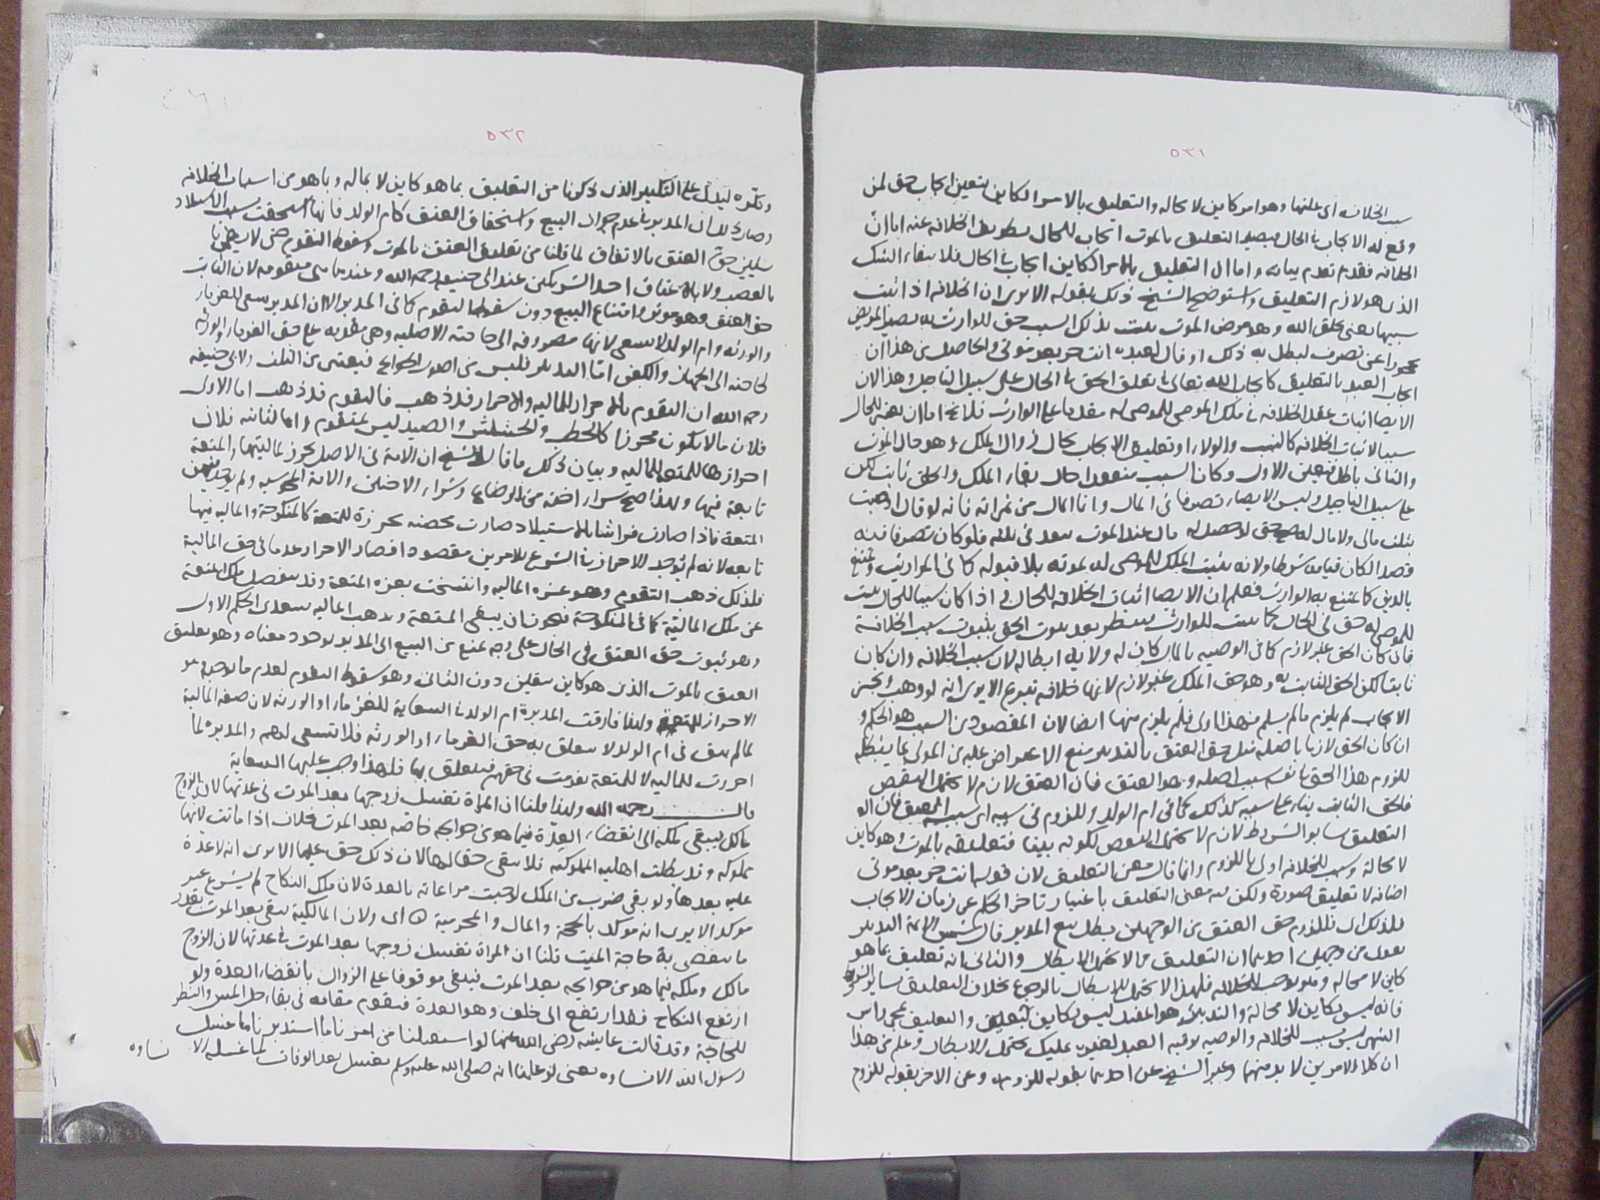 ٥٣١
سبب الخلافة اى علتها وهو امر كاين لا محالة والتعليق بالامر الكاين يتعين ايجاب حق لمن
وقع له الايجاب فى الحال فيصير التعليق بالموت ايجاب للحال بطريق الخلافة عنه اما ان
الخلافة فقد تقدم بيانه واما ان التعليق بالامر الكاين ايجاب فى الحال فلا بقاء الشك
الذى هو لازم التعليق واستوضح الشيخ ذلك بقوله الا يرى ان الخلافة اذا ثبت
سببها يعنى بخلق الله وهو مرض الموت يثبت بذلك السبب حق للوارث به يصير المريض
محجورا عن تصرف ليبطل به ذلك او قال لعبده انت حر بعد موتى والحاصل من هذا ان
ايجاب العبد بالتعليق كايجاب الله تعالى فى تعلق الحق فى الحال على سبيل التاجيل وهذا لان
الايصا اثبات عقد الخلافة فى ملك الموصى للموصى له مقدما على الوارث فلا يخ اما ان يعتبر للحال
سببا لاثبات الخلافة كالنسب والولاء او تعليق الايجاب بحال زوال الملك وهو حال الموت
والثانى باطل فتعين الاول وكان السبب منعقدا حال بقاء الملك والحق ثابت لكن
على سبيل التاجيل وليس الايصاء تصرفا فى المال وانما المال من ثمراته فانه لو قال اوصيت
بثلث مالى ولا مال له صح حتى لو حصل له مال عند الموت بعد فى ثلثه فلو كان تصرفا فيه
قصدا لكان قيامه شرطا ولانه يثبت الملك للموصى له بموته بلا قبوله كما فى المواريث ويمتنع
بالدين كما يمتنع به الوارث فعلم ان الايصا اثبات الخلافة للحال فاذا كان سببا للحال يثبت
للموصى له حق فى الحال كما يثبت للوارث ينتظر بعد ثبوت الحق بثبوت سبب الخلافة
فان كان الحق غير لازم كما فى الوصية بالمال كان له ولاية ابطاله لان سبب الخلافة وان كان
ثابتا لكن الحق الثابت به وهو حق الملك غير لازم لانها خلافة تبرع الا يرى انه لو وهب ونجز
الايجاب لم يلزم ما لم يسلم من هذا اولى فلم يلزم منها ايضا لان المقصود من السبب هو الحكم و
ان كان الحق لازما باصله مثل حق العتق بالتدبير منع الاعتراض عليه من المولى بما يبطله
للزوم هذا الحق فى نفسه بسبب اصله وهو العتق فان العتق لازم لا يحتمل النقض
فلحق الثابت بناء على سببه كذلك كما فى ام الولد وللزوم فى سببه اى سبب العتق فان الو
التعليق بسائر الشروط لازم لا يحتمل النقض لكونه يمينا فتعليقه بالموت وهو كاين
لا محالة وسبب للخلافة اولى باللزوم وانما قال معنى التعليق لان قوله انت حر بعد موتى
اضافة لا تعليق صورة ولكن له معنى التعليق باعتبار تاخر الحكم عن زمان الايجاب
فلذلك اى فللزوم حق العتق من الوجهين يبطل بيع المدبر قال شمس الائمة التدبير
يعدل من وجهين احدهما ان التعليق مما لا يحتمل الابطال والثانى انه تعليق بما هو
كاين لا محالة وهو موجب للخلافة فلهذا لا يحتمل الابطال بالرجوع بخلاف التعليق بسائر الشروط
فانه ليس بكاين لا محالة والتدبير هو العقد ليس بكاين لتعليق والتعليق بمجئ راس
الشهر ليس بسبب للخلافة والوصية برقبة العبد لغيره تمليك يحتمل الابطال وعلم من هذا
ان كلا الامرين لا بد منهما وعبر الشيخ عن احدهما بقوله للزومه وعن الاخر بقوله للزوم
٥٣٢
وتكرره ليدل على التكبير الذى ذكرنا من التعليق بما هو كاين لا محالة وبما هو من اسباب الخلافة
وصار ذلك اى المدبر فى عدم جواز البيع واستحقاق العتق كام الولد فانها استحقت بسبب الاستيلاد
شيئين حق العتق بالاتفاق لما قلنا من تعليق العتق بالموت وسقوط التقوم حتى لا يضمن
بالغصب ولا باعتاق احد الشريكين عند ابى حنيفة رحمه الله وعندهما هى متقومة لان الثابت
حق العتق وهو موثر فى امتناع البيع دون سقوط التقوم كما فى المدبر الا ان المدبر يسعى للغرماء
والورثة وام الولد لا تسعى لانها مصروفة الى حاجته الاصلية وهى مقدمة على حق الغرماء والورثة
كحاجته الى الجهاز والكفن اما التدبير فليس من اصول الحوائج فيعتبر من الثلث ولابى حنيفة
رحمه الله ان التقوم بالاحراز للمالية والاحراز قد ذهب فالتقوم قد ذهب اما الاول
فلان ما لا يكون محرزا كالحطب والحشيش والصيد ليس بمتقوم واما الثانى فلان
احرازها للمتعة لا للمالية وبيان ذلك ما قال الشيخ ان الامة فى الاصل تحرز لماليتها والمتعة
تابعة فيها ولهذا صح شراء اخته من الرضاع وشراء الاختين والامة المجوسية ولم يوجد فيهن
المتعة فاذا صارت فراشا بالاستيلاد صارت محصنة محرزة للمتعة كالمنكوحة والمالية فيها
تابعة لانه لم يوجد الاحراز فى الشرع للامرين مقصودا فصار الاحراز عدما فى حق المالية
فلذلك ذهب التقوم وهو عزة المالية وانتسخت بعزة المتعة وقد ينفصل ملك المتعة
عن ملك المالية كما فى المنكوحة فيجوز ان يبقى المتعة ويذهب المالية فتعدى الحكم الاول
وهو ثبوت حق العتق فى الحال على وجه يمنع من البيع الى المدبر لوجود معناه وهو تعليق
العتق بالموت الذى هو كاين بيقين دون الثانى وهو سقوط التقوم لعدم ما يوجبه وهو
الاحراز للمتعة ولهذا فارقت المدبرة ام الولد فى السعاية للغرماء او الورثة لان صفة المالية
لما لم تبق فى ام الولد لا يتعلق به حق الغرماء او الورثة فلا تسعى لهم والمدبرة لما
احرزت للمالية لا للمتعة تقومت فى حقهم فيتعلق بها فلهذا وجب عليها السعاية
قال رحمه الله ولهذا قلنا ان المراة تغسل زوجها بعد الموت فى عدتها لان الزوج
مالك فيبقى ملكه الى انقضاء العدة فيما هو من حوائجه خاصة بعد الموت بخلاف اذا ماتت لانها
مملوكة وقد بطلت اهلية المملوكية فلا يبقى حقا لها لان ذلك حق عليها الا يرى انه لا عدة
عليه بعدها ولو بقى ضرب من الملك لوجبت مراعاته بالعدة لان ملك النكاح لم يشرع غير
موكد الا يرى انه موكد بالحجة والمال والمحرمية اى ولان المالكية تبقى بعد الموت بقدر
ما ينقضى به حاجة الميت قلنا ان المراة تغسل زوجها بعد الموت فى عدتها لان الزوج
مالك وملكه فيما هو من حوائجه بعد الموت فيبقى موقوفا على الزوال بانقضاء العدة ولو
ارتفع النكاح فقد ارتفع الى خلف وهو العدة فيقوم مقامه فى بقاء حل المس والنظر
للحاجة وقد قالت عايشة رضى الله عنها لو استقبلنا من امرنا ما استدبرنا ما غسل
رسول الله الا نساوه يعنى لو علمنا انه صلى الله عليه وسلم يغسل بعد الوفاة لما غسله الا نساوه